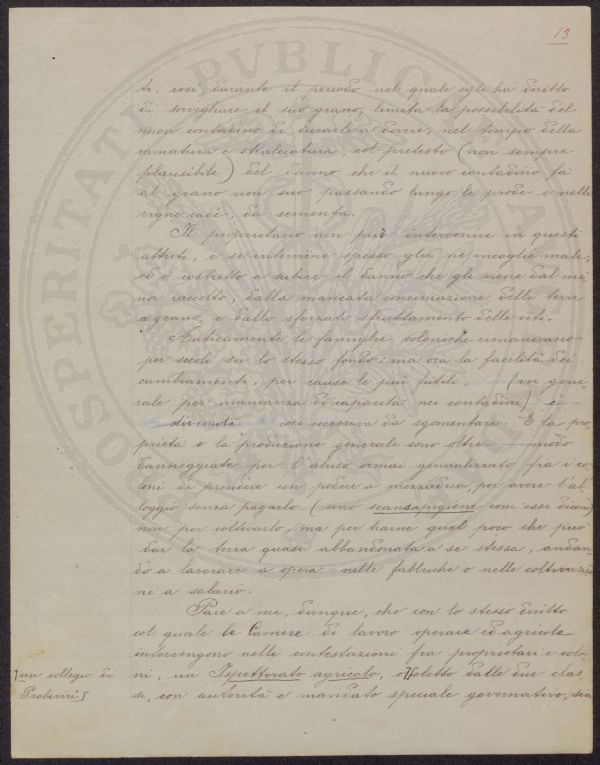 13
ti, così durante il periodo nel quale egli ha diritto
di sorvegliare il suo grano, limita la possibilità del
nuovo contadino di curarle a dovere, nel tempo della
ramatura e stralciatura, col pretesto (non sempre
plausibile) del danno che il nuovo contadino fa
al grano non suo passando lungo le prode e nelle
vigne, da sementa.
Il proprietario non può intervenire in questi
attriti, e se interviene spesso glie ne incoglie male;
ed è costretto a subire il danno che gli viene dal mi
nor raccolto, dalla mancata concimazione delle terre
a grano, e dallo sforzato sfruttamento delle viti.
Anticamente le famiglie coloniche rimanevano
per secoli su lo stesso fondo: ma ora la facilità dei
cambiamenti, per cause le più futili, (in gene
rale per mancanza di capacità nei contadini) è
divenuta così eccessiva da sgomentare. E la pro
prietà e la produzione generale sono oltre modo
danneggiate per l'abuso ormai generalizzato fra i co
loni di prendere un podere a mezzadria, per avere l'al
loggio senza pagarlo (uno scansapigione com'esse dicono)
non per coltivarlo, ma per trarne quel poco che può
dar la terra quasi abbandonata a se stessa, andan
do a lavorare a opera nelle fabbriche o nelle coltivazio
ni a salario.
Pare a me, dunque, che con lo stesso diritto
col quale le Camere di lavoro operaie ed agricole
intervengono nelle contestazioni fra proprietari e colo
ni, un Ispettorato agricolo, o eletto dalle due clas
si, con autorità e mandato speciale governativo, sia
un collegio di
Probiviri
PROSPERITATI PVBLICAE